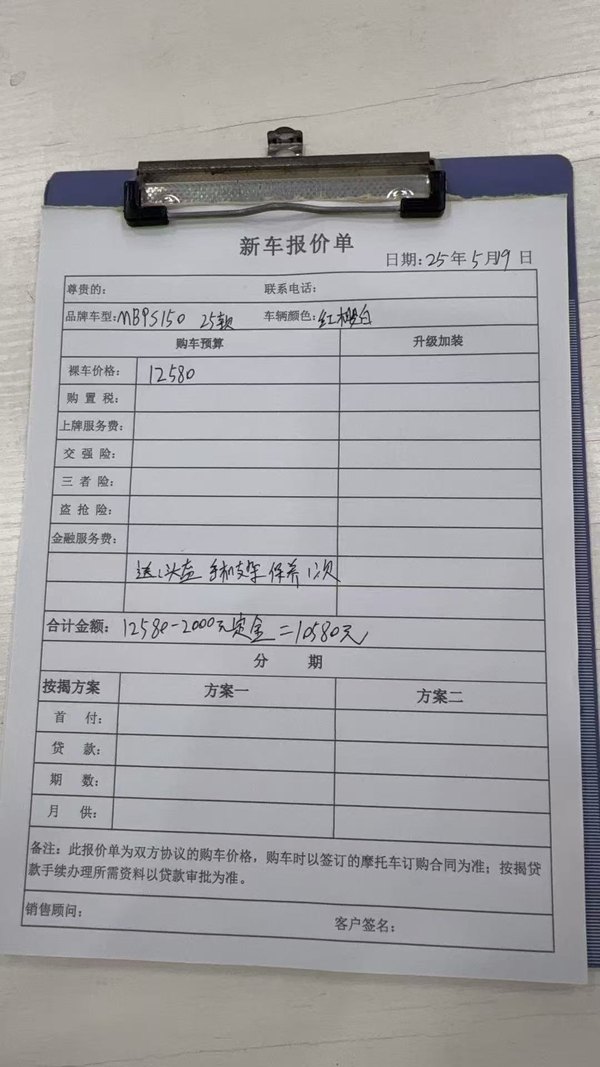 新车报价单
日期:25年5月19日
尊贵的: 联系电话:
品牌车型:NBPS150 25款 车辆颜色:红樱白
购车预算 升级加装
裸车价格: 12580
购置税:
上牌服务费:
交强险:
三者险:
盗抢险:
金融服务费:
送:头盔 手机支架 保养1次
合计金额: 12580-2000元定金=10580元
分 期
按揭方案 方案一 方案二
首 付:
贷 款:
期 数:
月 供:
备注:此报价单为双方协议的购车价格,购车时以签订的摩托车订购合同为准;按揭贷
款手续办理所需资料以贷款审批为准。
销售顾问: 客户签名: